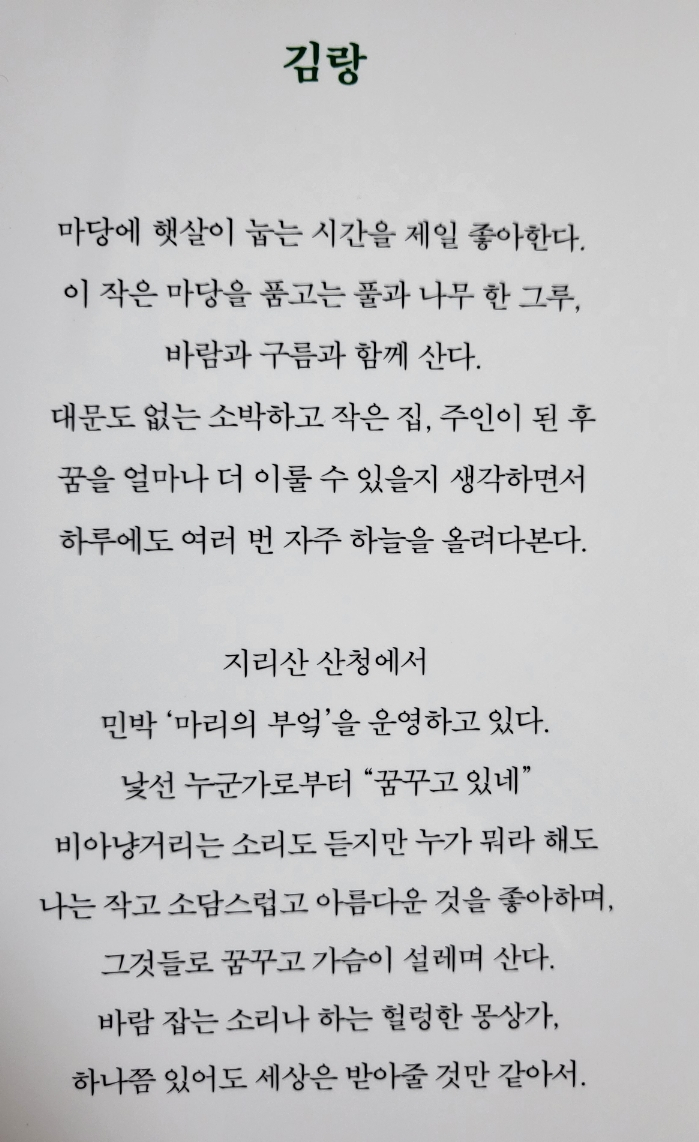 김랑
마당에 햇살이 눕는 시간을 제일 좋아한다.
이 작은 마당을 품고는 풀과 나무 한 그루,
바람과 구름과 함께 산다.
대문도 없는 소박하고 작은 집, 주인이 된 후
꿈을 얼마나 더 이룰 수 있을지 생각하면서
하루에도 여러 번 자주 하늘을 올려다본다.
지리산 산청에서
민박 ‘마리의 부엌’을 운영하고 있다.
낯선 누군가로부터 “꿈꾸고 있네”
비아냥거리는 소리도 듣지만 누가 뭐라 해도
나는 작고 소담스럽고 아름다운 것을 좋아하며,
그것들로 꿈꾸고 가슴이 설레며 산다.
바람 잡는 소리나 하는 헐렁한 몽상가,
하나쯤 있어도 세상은 받아줄 것만 같아서.